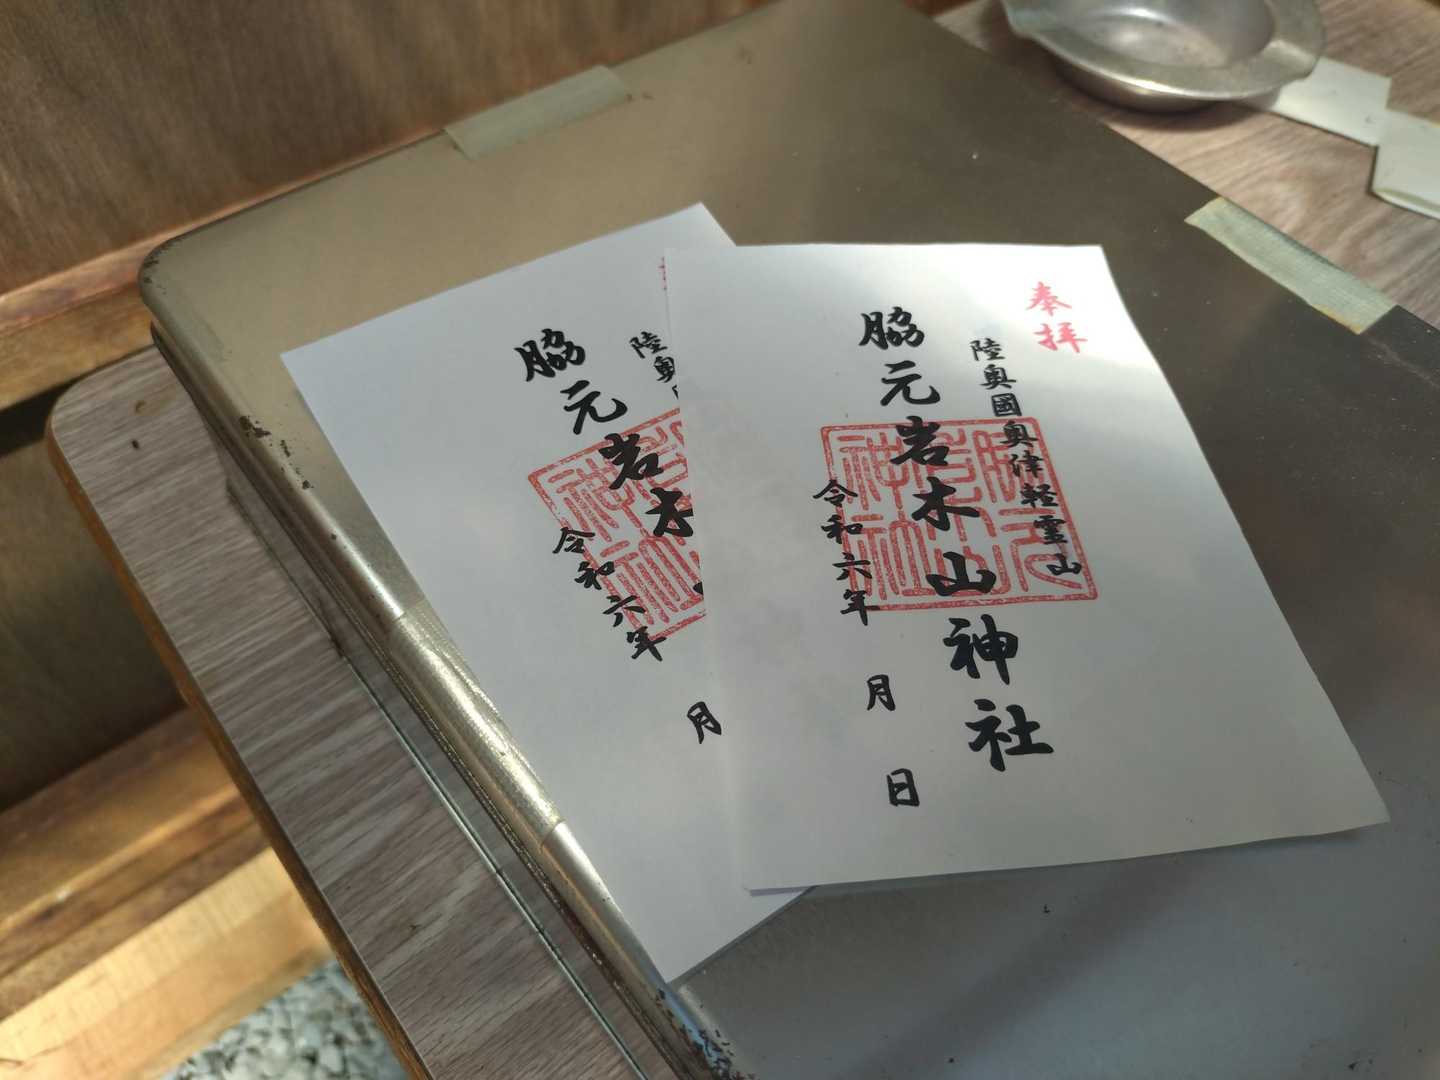 奉拝
陸奥國奥津軽霊山
脇元岩木山神社
令和六年 月 日
脇元岩木山神社
陸奥
脇元岩木
令和六年 月